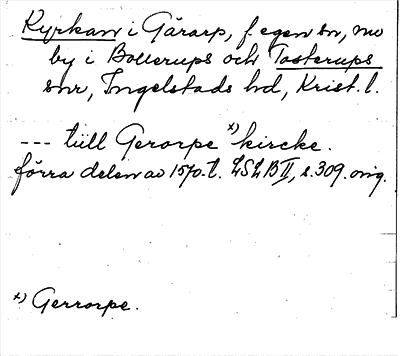 Kyrkan i Gärarp, f. egen sn, nu
by i Bollerups och Tosterups
snr, Ingelstads hd, Krist. l.
--- till Gerorpe x) kircke.
förra delen av 1570-t. LSLB II, s. 309. orig.
x) Gerrorpe.